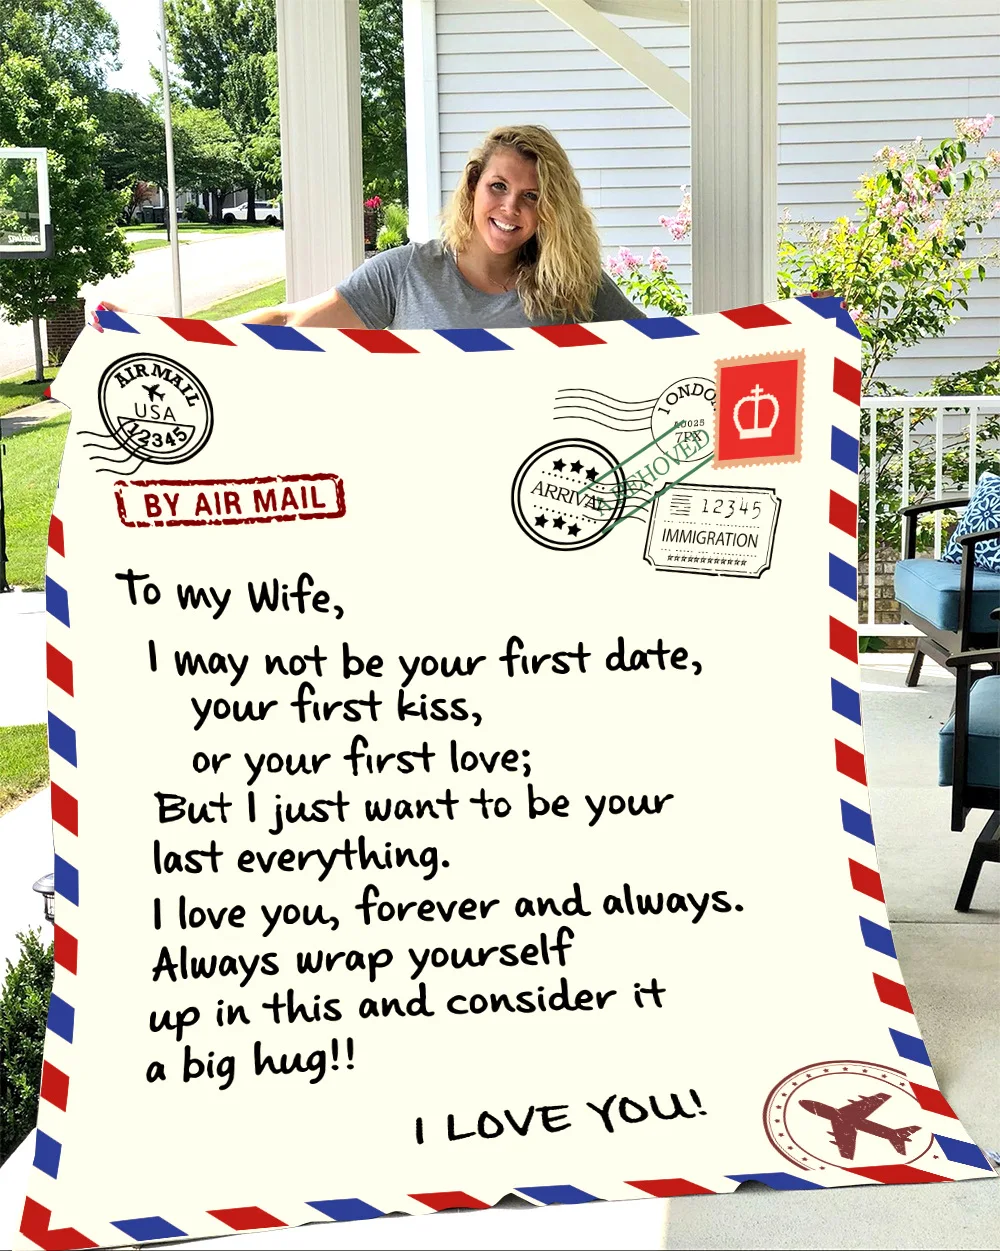 AIR MAIL
USA
12345
BY AIR MAIL
ARRIVAL
12345
IMMIGRATION
To my Wife,
I may not be your first date,
your first kiss,
or your first love;
But I just want to be your
last everything.
I love you, forever and always.
Always wrap yourself
up in this and consider it
a big hug!!
I LOVE YOU!